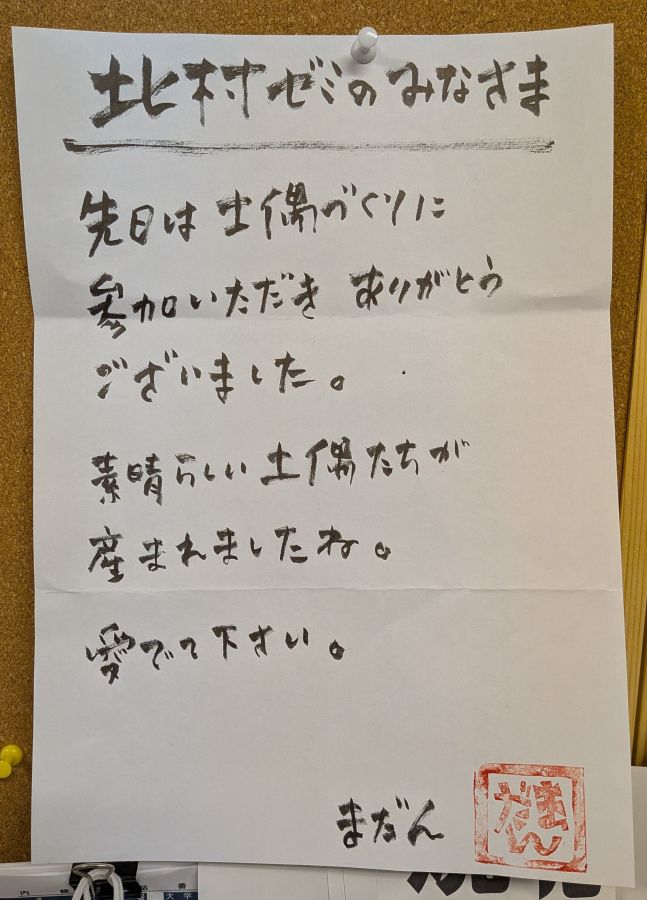 北村ゼミのみなさま
先日は土偶づくりに
参加いただきありがとう
ございました。
素晴らしい土偶たちが
産まれましたね。
愛でて下さい。
まだん
まだん